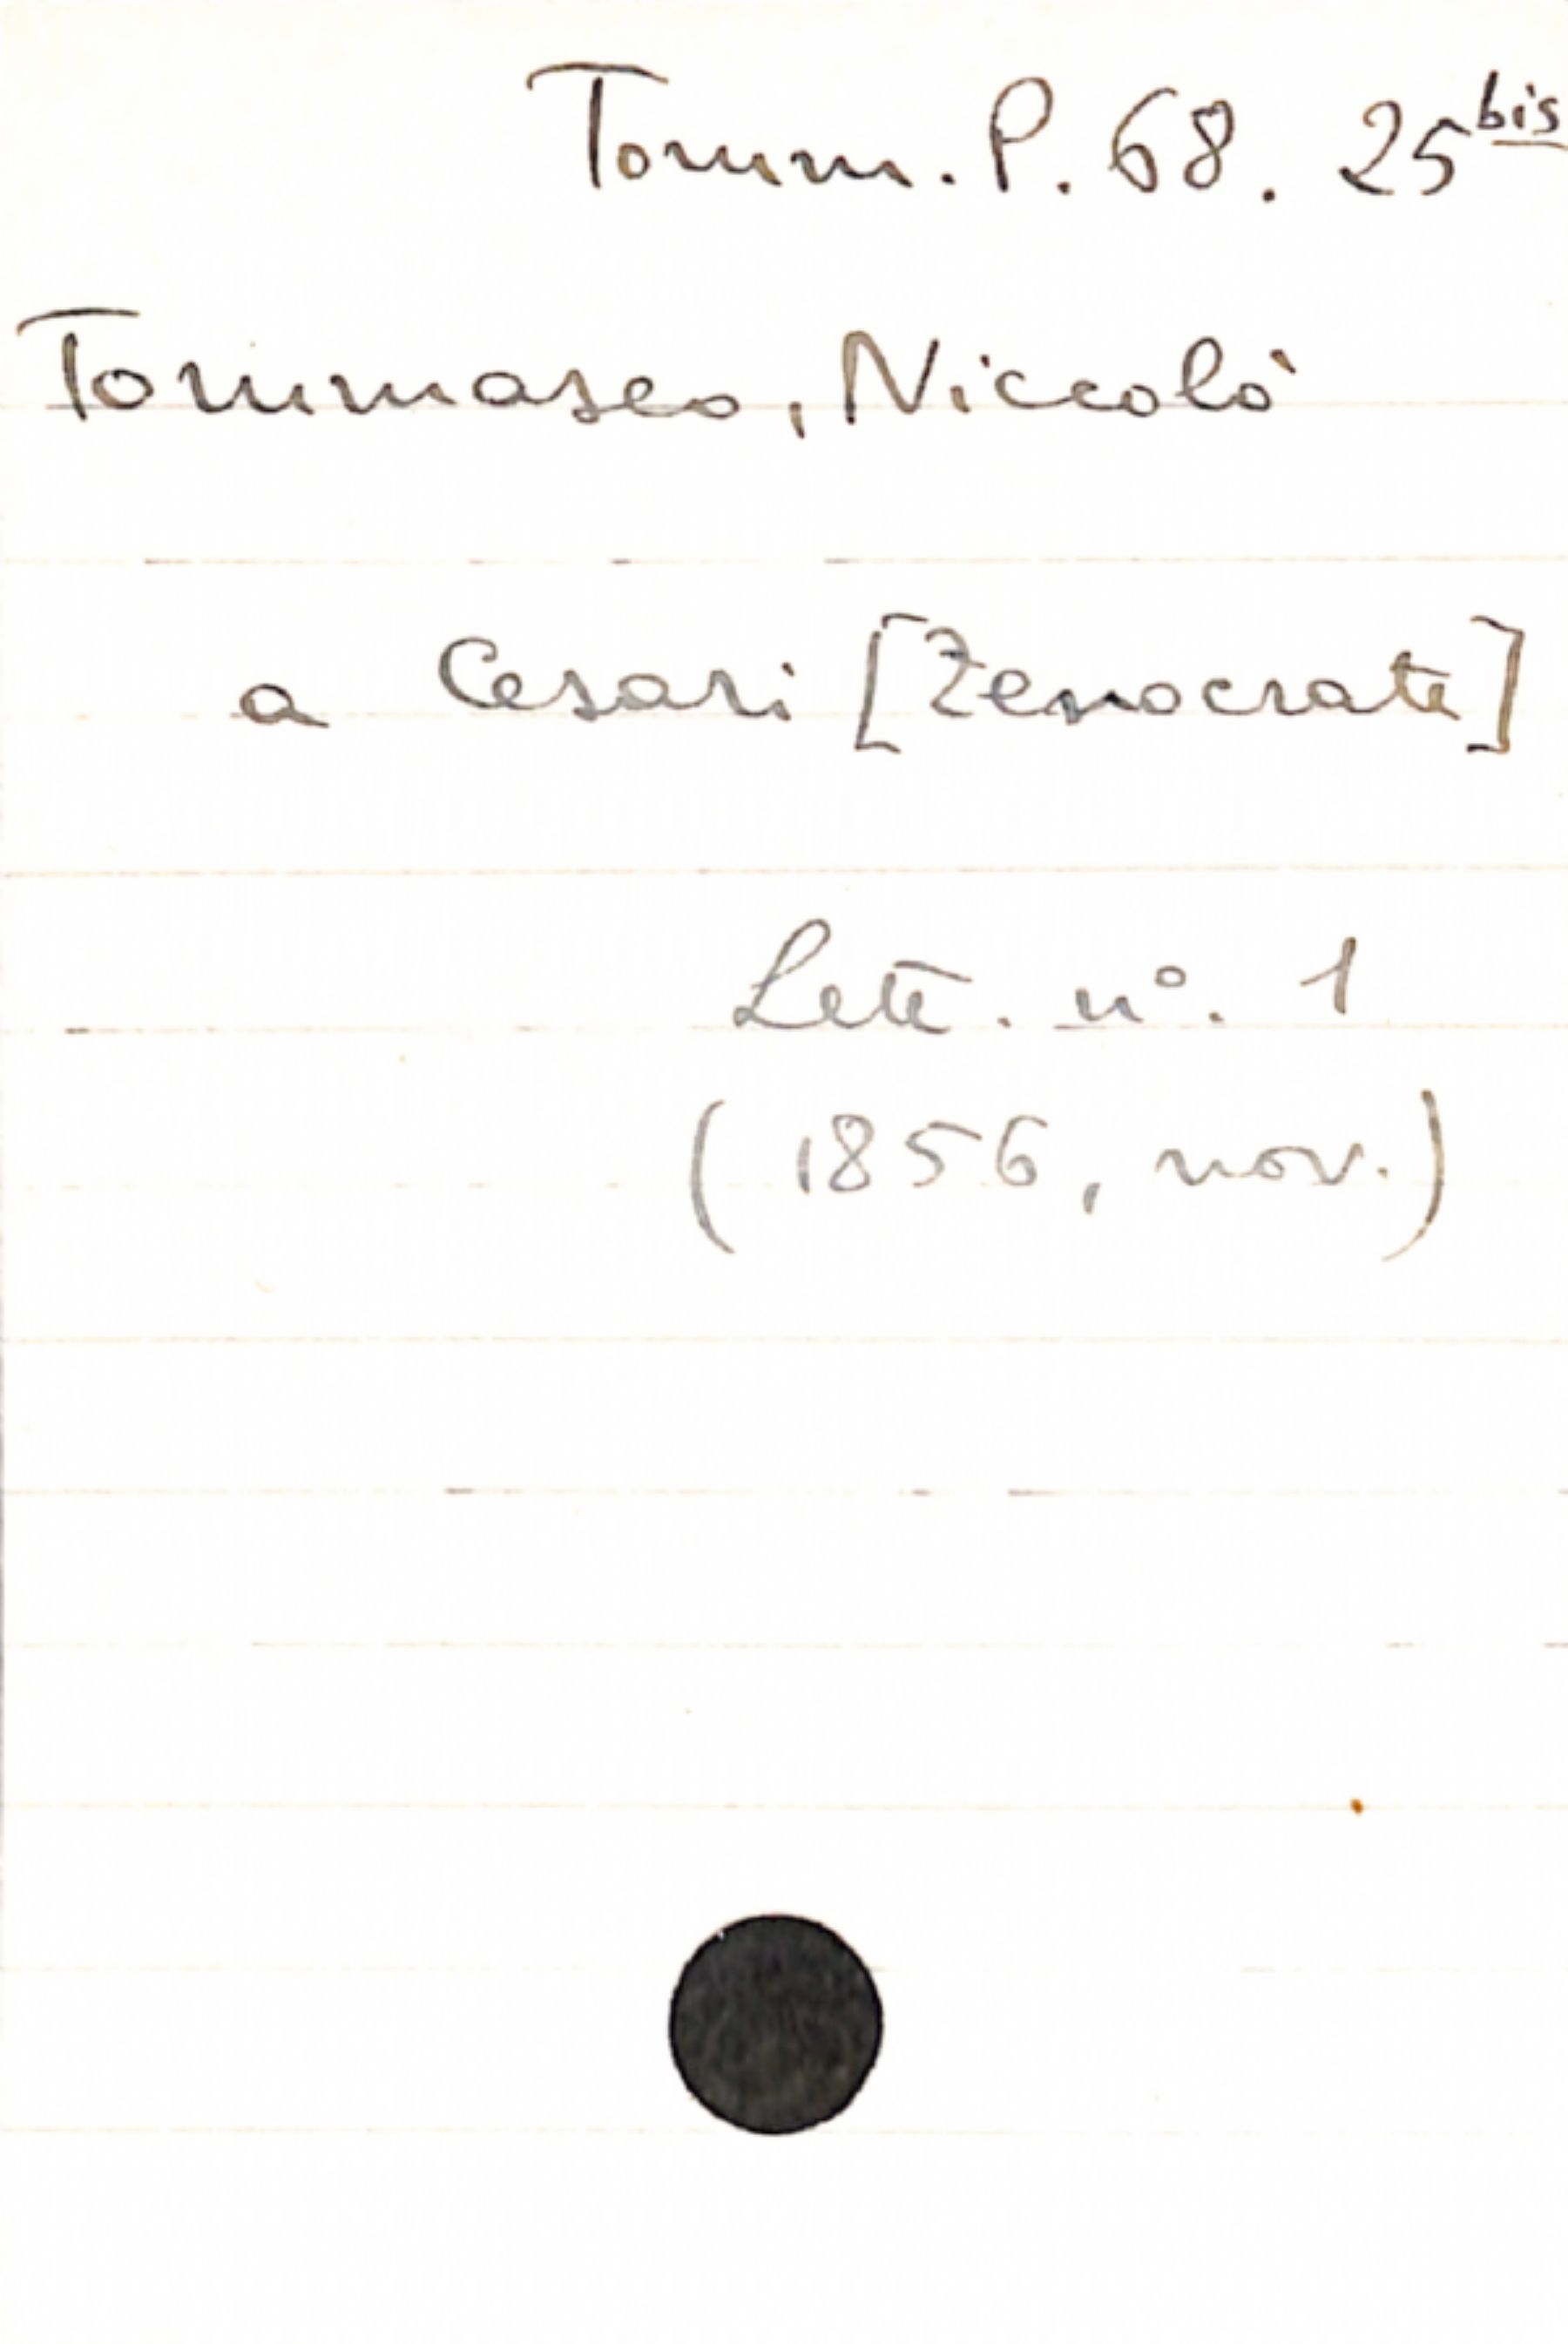 Tomm. P. 68. 25 bis
Tommaseo, Niccolò
a Cesari [Zenocrate]
Lett. n°. 1
(1856, nov.)